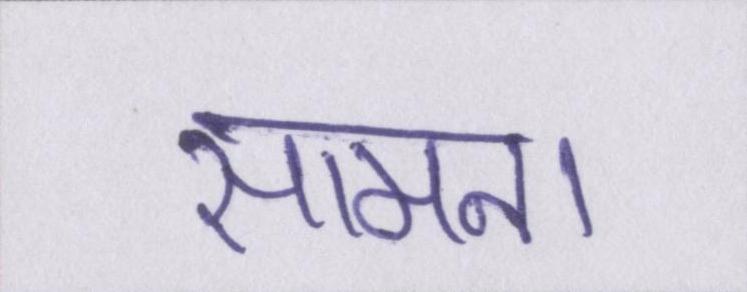 सामना